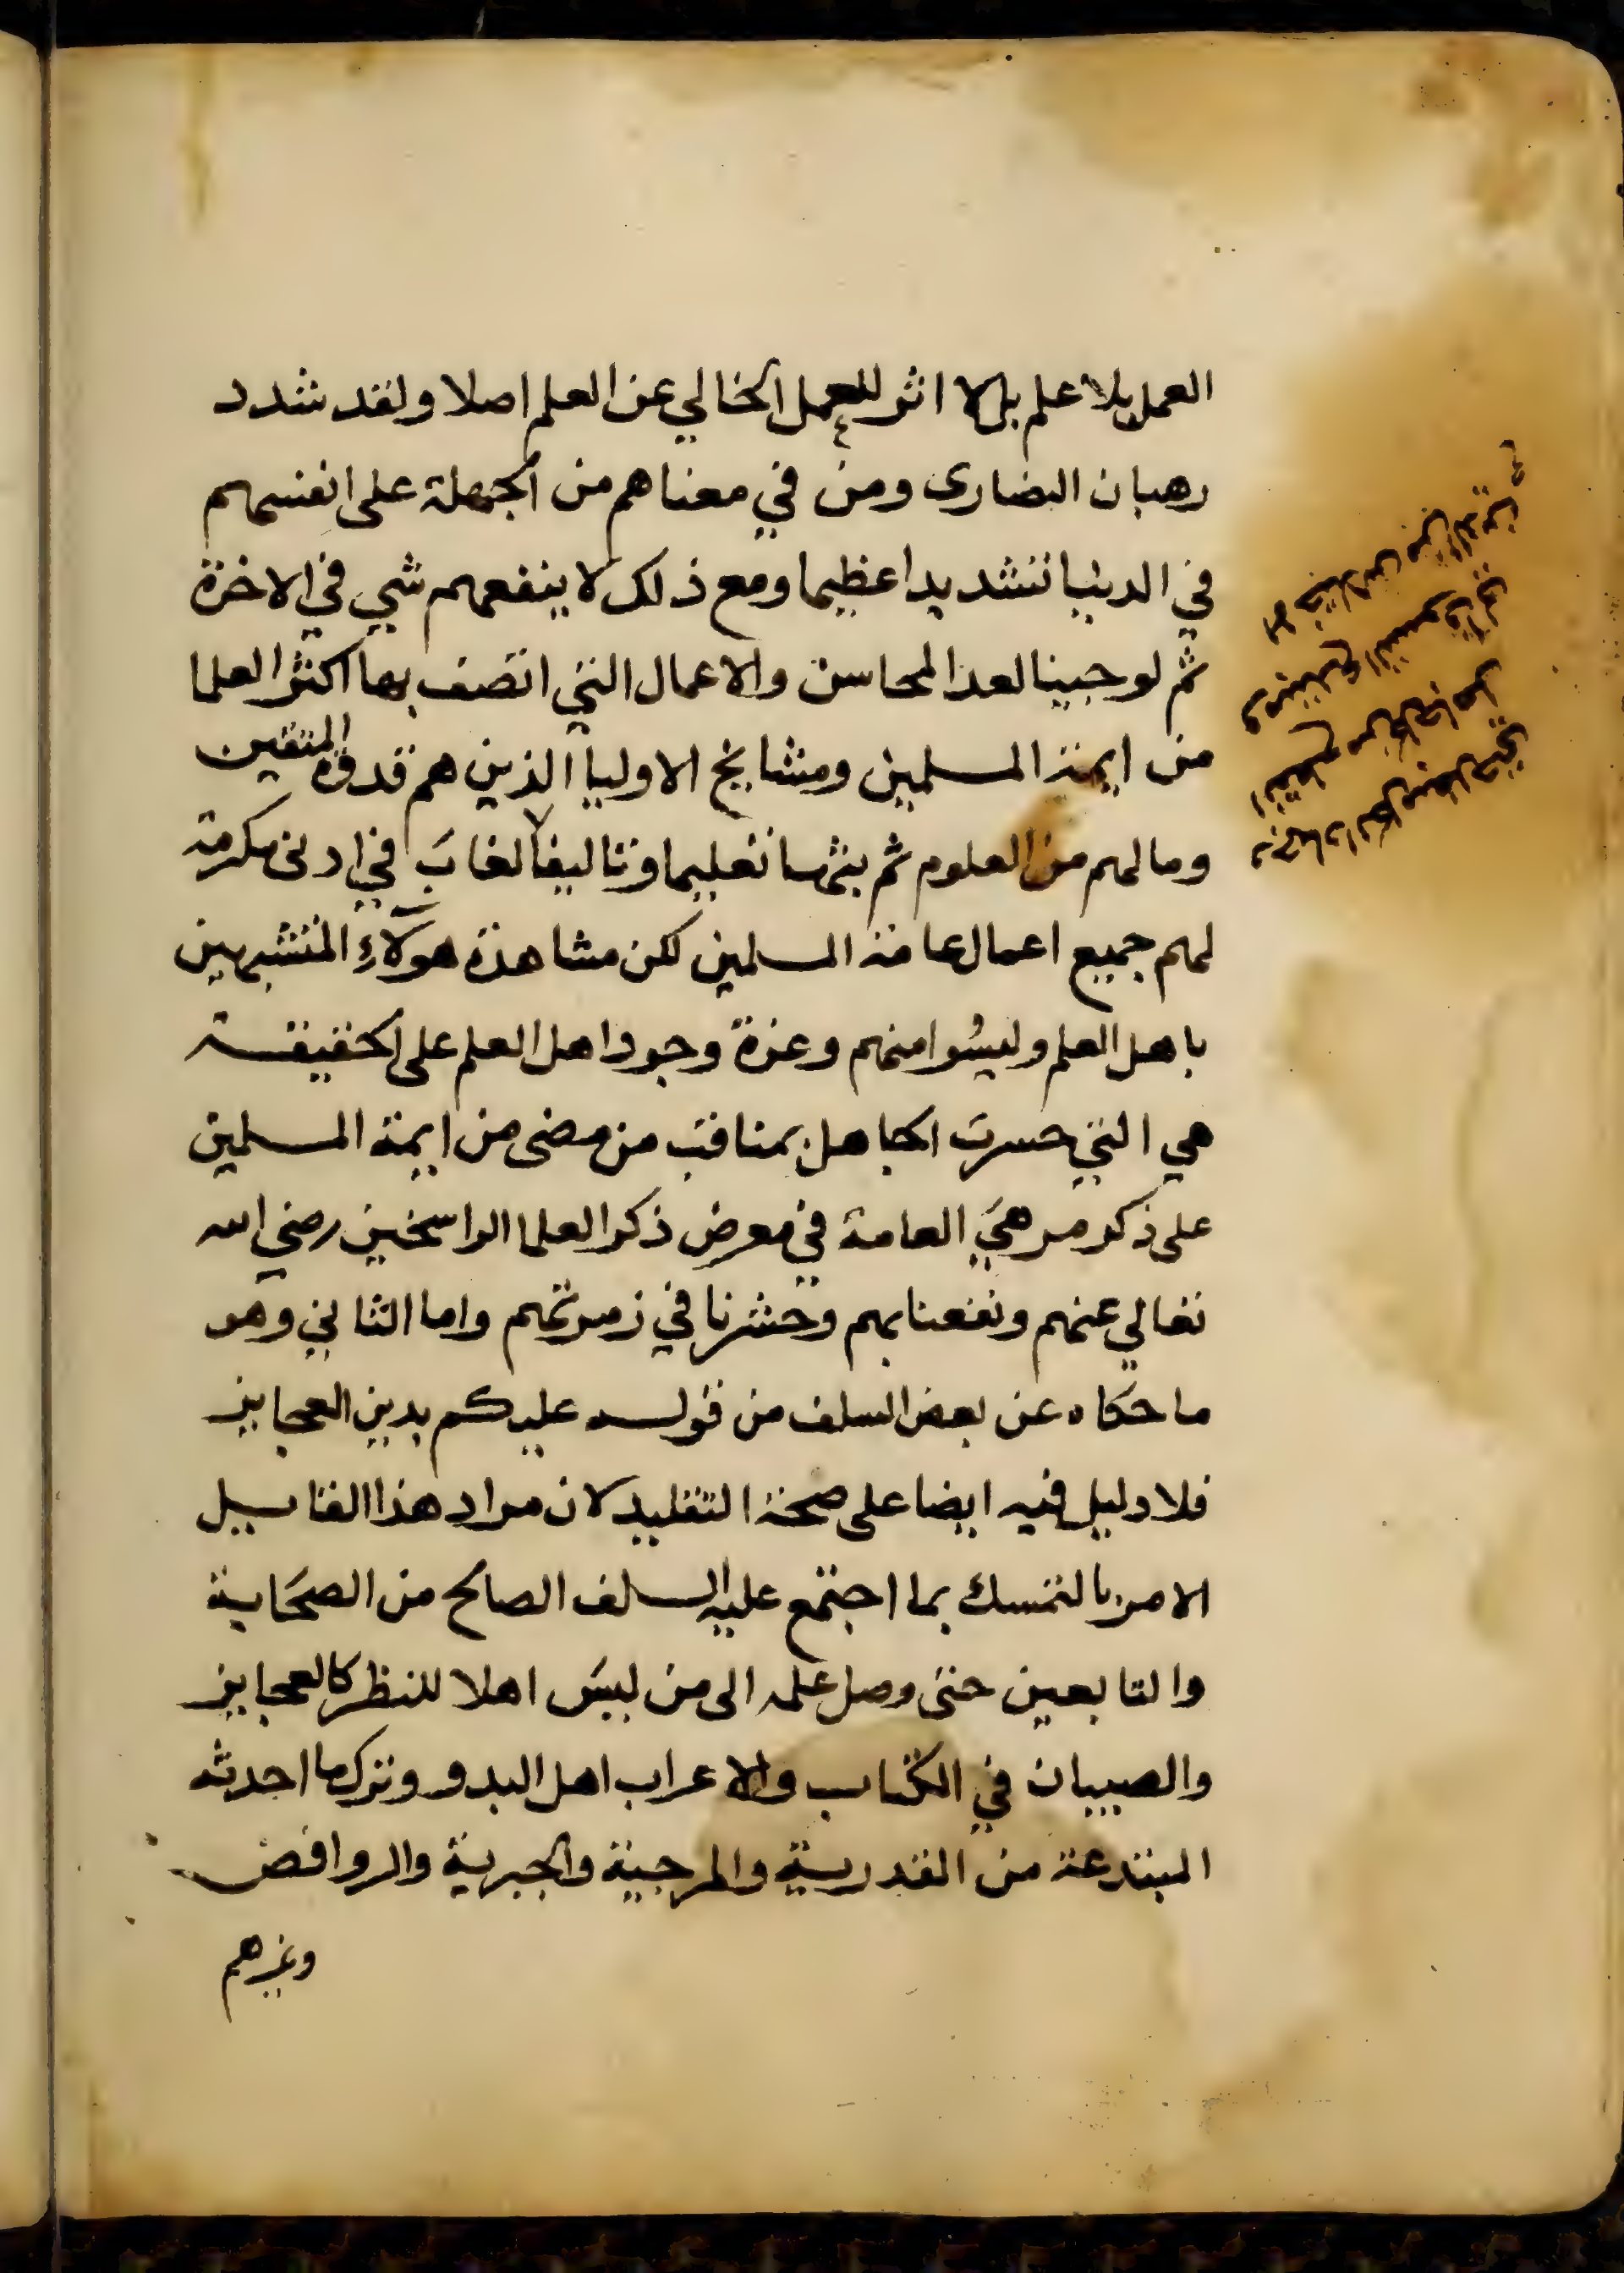 العمل بلا علم بل لا اثر للعمل الخالي عن العلم اصلا ولقد شدد
رهبان النصارى ومن في معناهم من الجهلة على انفسهم
في الدنيا تشديدا عظيما ومع ذلك لا ينفعهم شي في الاخرة
ثم لو جينا لعد المحاسن والاعمال التي اتصف بها اكثر العلما
من ايمة المسلمين ومشايخ الاوليا الذين هم قدوة المتقين
وما لهم من العلوم ثم بثها تعليما وتاليفا لغاب في ادنى مكرمة
لهم جميع اعمال عامة المسلمين لكن مشاهدة هولاء المتشبهين
باهل العلم وليسوا منهم وعزة وجود اهل العلم على الحقيقة
هي التي جسرت الجاهل بمناقب من مضى من ايمة المسلمين
على ذكر مرهي العامة في معرض ذكر العلما الراسخين رضي الله
تعالي عنهم ونفعنا بهم وحشرنا في زمرتهم واما الثاني وهو
ما حكاه عن بعض السلف من قوله عليكم بدين العجايز
فلا دليل فيه ايضا على صحة التقليد لان مراد هذا القايل
الامر بالتمسك بما اجتمع عليه السلف الصالح من الصحابة
والتابعين حتى وصل علمه الى من ليس اهلا للنظر كالعجايز
والصبيان في الكتاب والاعراب اهل البدو وترك ما احدثه
المبتدعة من القدرية والمرجية والجبرية والروافض
وغيرهم